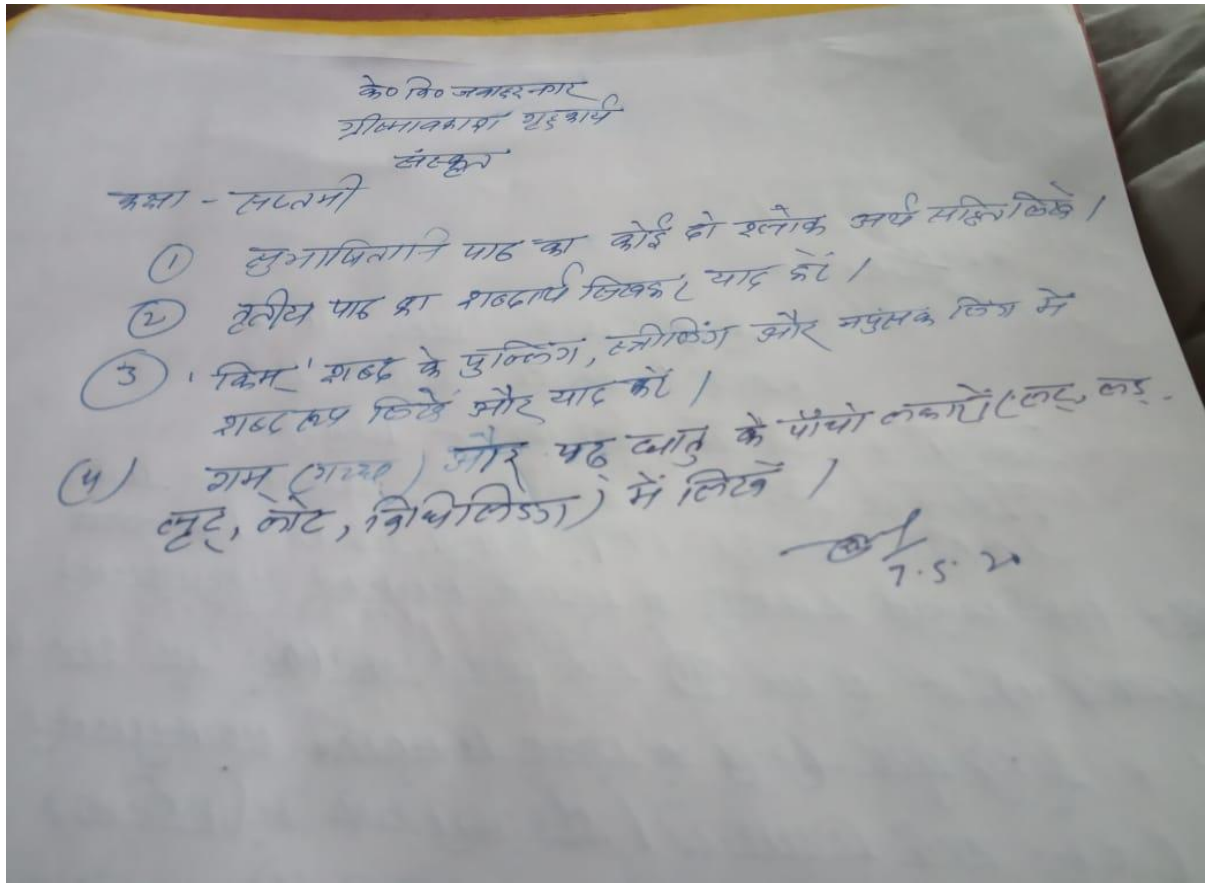 के० वि० जवाहर नगर
ग्रीष्मावकाश गृहकार्य
संस्कृत
कक्षा - सप्तमी
① सुभाषितानि पाठ का कोई दो श्लोक अर्थ सहित लिखें।
② तृतीय पाठ का शब्दार्थ लिखकर याद करें।
③ 'किम्' शब्द के पुल्लिंग, स्त्रीलिंग और नपुंसक लिंग में
शब्द रूप लिखें और याद करें।
(4) गम् (गच्छ) और पठ् धातु के पाँचो लकारों (लट्, लङ्,
लृट्, लोट, विधिलिङ्ग) में लिखें।
7.5.20